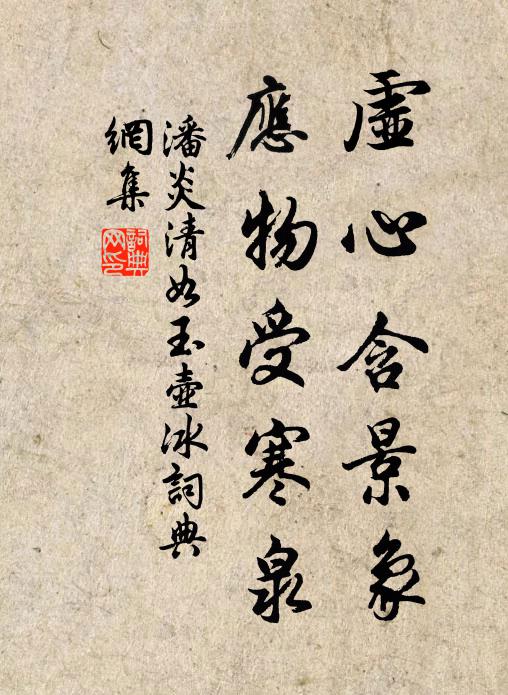 虛心含景象
應物受寒泉
潘炎清如玉壺冰詞典
網集
詞典
网印